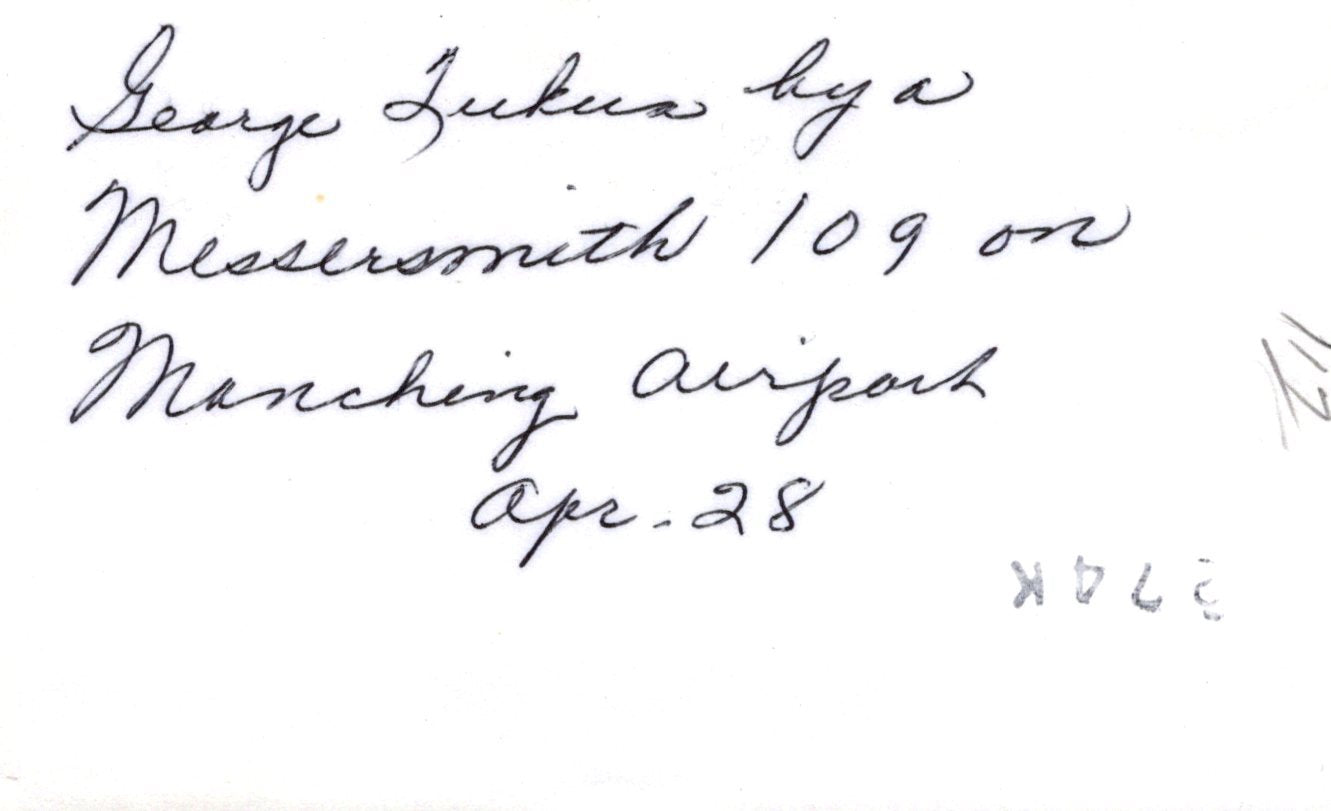 George by a
Messersmith 109 on
Manching Airport
Apr. 28